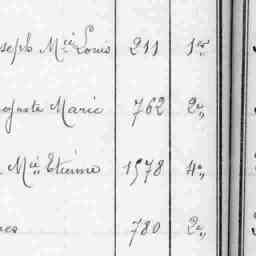 seph Mie Louis 211 1er
oguste Marie 762 2e
Mie Etienne 1578 4e
780 2e